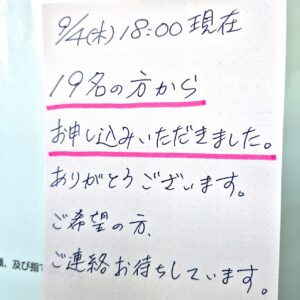 9/4(木) 18:00 現在
19名の方から
お申し込みいただきました。
ありがとうございます。
ご希望の方、
ご連絡お待ちしています。
、及び指